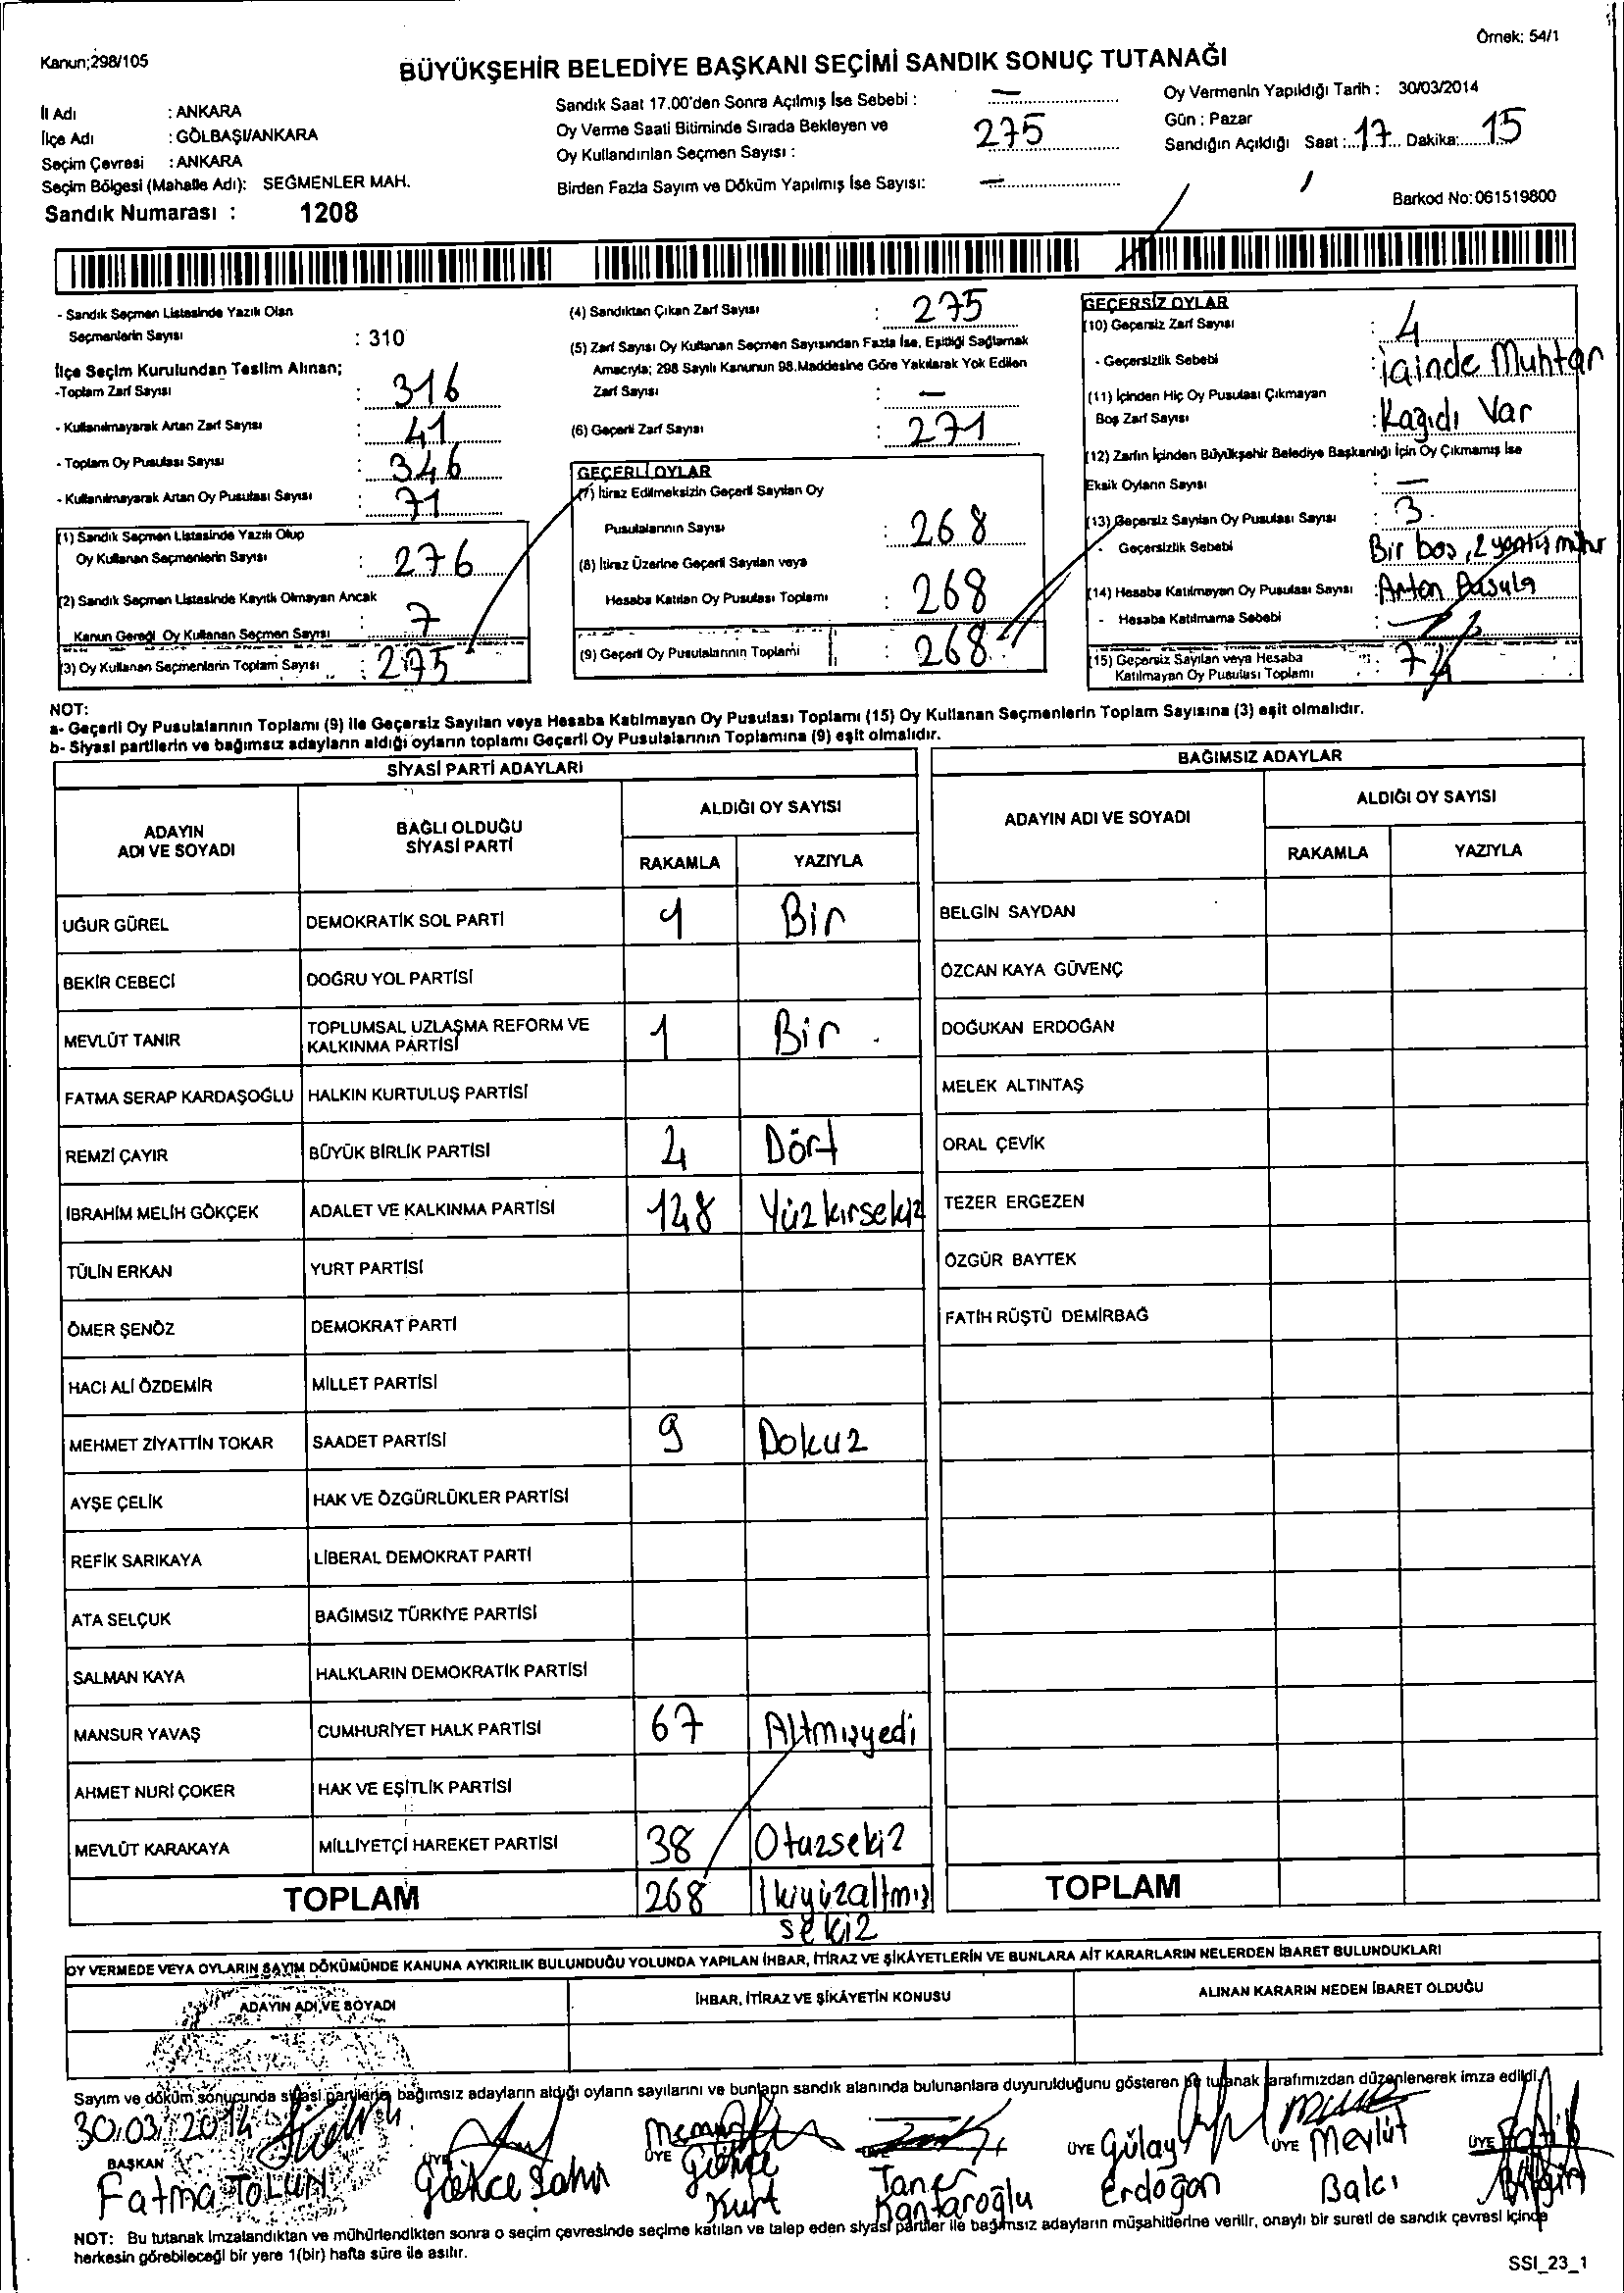 Örnek: 54/1
Kanun;298/105
BÜYÜKŞEHİR BELEDİYE BAŞKANI SEÇİMİ SANDIK SONUÇ TUTANAĞI
İl Adı : ANKARA
İlçe Adı : GÖLBAŞI/ANKARA
Seçim Çevresi : ANKARA
Seçim Bölgesi (Mahalle Adı): SEĞMENLER MAH.
Sandık Numarası : 1208
Sandık Saat 17.00'den Sonra Açılmış İse Sebebi : —
Oy Verme Saati Bitiminde Sırada Bekleyen ve
Oy Kullandırılan Seçmen Sayısı : 275
Birden Fazla Sayım ve Döküm Yapılmış İse Sayısı: —
Oy Vermenin Yapıldığı Tarih : 30/03/2014
Gün : Pazar
Sandığın Açıldığı Saat : 17 Dakika: 15
Barkod No:061519800
- Sandık Seçmen Listesinde Yazılı Olan
Seçmenlerin Sayısı : 310
İlçe Seçim Kurulundan Teslim Alınan;
-Toplam Zarf Sayısı : 316
- Kullanılmayarak Artan Zarf Sayısı : 41
- Toplam Oy Pusulası Sayısı : 346
- Kullanılmayarak Artan Oy Pusulası Sayısı : 71
(1) Sandık Seçmen Listesinde Yazılı Olup
Oy Kullanan Seçmenlerin Sayısı : 276
(2) Sandık Seçmen Listesinde Kayıtlı Olmayan Ancak
Kanun Gereği Oy Kullanan Seçmen Sayısı : 7
(3) Oy Kullanan Seçmenlerin Toplam Sayısı : 275
(4) Sandıktan Çıkan Zarf Sayısı : 275
(5) Zarf Sayısı Oy Kullanan Seçmen Sayısından Fazla İse, Eşitliği Sağlamak
Amacıyla; 298 Sayılı Kanunun 98.Maddesine Göre Yakılarak Yok Edilen
Zarf Sayısı : —
(6) Geçerli Zarf Sayısı : 271
GEÇERLİ OYLAR
(7) İtiraz Edilmeksizin Geçerli Sayılan Oy
Pusulalarının Sayısı : 268
(8) İtiraz Üzerine Geçerli Sayılan veya
Hesaba Katılan Oy Pusulası Toplamı : 268
(9) Geçerli Oy Pusulalarının Toplamı : 268
GEÇERSİZ OYLAR
(10) Geçersiz Zarf Sayısı : 4
- Geçersizlik Sebebi : içinde Muhtar
(11) İçinden Hiç Oy Pusulası Çıkmayan
Boş Zarf Sayısı : Kağıdı Var
(12) Zarfın İçinden Büyükşehir Belediye Başkanlığı İçin Oy Çıkmamış İse
Eksik Oyların Sayısı : —
(13) Geçersiz Sayılan Oy Pusulası Sayısı : 3
- Geçersizlik Sebebi Bir boş, 2 yanlış mühür
(14) Hesaba Katılmayan Oy Pusulası Sayısı :
- Hesaba Katılmama Sebebi :
(15) Geçersiz Sayılan veya Hesaba
Katılmayan Oy Pusulası Toplamı : 7
NOT:
a- Geçerli Oy Pusulalarının Toplamı (9) ile Geçersiz Sayılan veya Hesaba Katılmayan Oy Pusulası Toplamı (15) Oy Kullanan Seçmenlerin Toplam Sayısına (3) eşit olmalıdır.
b- Siyasi partilerin ve bağımsız adayların aldığı oyların toplamı Geçerli Oy Pusulalarının Toplamına (9) eşit olmalıdır.
SİYASİ PARTİ ADAYLARI
ADAYIN ADI VE SOYADI BAĞLI OLDUĞU SİYASİ PARTİ ALDIĞI OY SAYISI
RAKAMLA YAZIYLA
UĞUR GÜREL DEMOKRATİK SOL PARTİ 1 Bir
BEKİR CEBECİ DOĞRU YOL PARTİSİ
MEVLÜT TANIR TOPLUMSAL UZLAŞMA REFORM VE KALKINMA PARTİSİ 1 Bir
FATMA SERAP KARDAŞOĞLU HALKIN KURTULUŞ PARTİSİ
REMZİ ÇAYIR BÜYÜK BİRLİK PARTİSİ 4 Dört
İBRAHİM MELİH GÖKÇEK ADALET VE KALKINMA PARTİSİ 148 Yüzkırsekiz
TÜLİN ERKAN YURT PARTİSİ
ÖMER ŞENÖZ DEMOKRAT PARTİ
HACI ALİ ÖZDEMİR MİLLET PARTİSİ
MEHMET ZİYATTİN TOKAR SAADET PARTİSİ 9 Dokuz
AYŞE ÇELİK HAK VE ÖZGÜRLÜKLER PARTİSİ
REFİK SARIKAYA LİBERAL DEMOKRAT PARTİ
ATA SELÇUK BAĞIMSIZ TÜRKİYE PARTİSİ
SALMAN KAYA HALKLARIN DEMOKRATİK PARTİSİ
MANSUR YAVAŞ CUMHURİYET HALK PARTİSİ 67 Altmışyedi
AHMET NURİ ÇOKER HAK VE EŞİTLİK PARTİSİ
MEVLÜT KARAKAYA MİLLİYETÇİ HAREKET PARTİSİ 38 Otuzsekiz
TOPLAM 268 İkiyüzaltmış
sekiz
BAĞIMSIZ ADAYLAR
ADAYIN ADI VE SOYADI ALDIĞI OY SAYISI
RAKAMLA YAZIYLA
BELGİN SAYDAN
ÖZCAN KAYA GÜVENÇ
DOĞUKAN ERDOĞAN
MELEK ALTINTAŞ
ORAL ÇEVİK
TEZER ERGEZEN
ÖZGÜR BAYTEK
FATİH RÜŞTÜ DEMİRBAĞ
TOPLAM
OY VERMEDE VEYA OYLARIN SAYIM DÖKÜMÜNDE KANUNA AYKIRILIK BULUNDUĞU YOLUNDA YAPILAN İHBAR, İTİRAZ VE ŞİKÂYETLERİN VE BUNLARA AİT KARARLARIN NELERDEN İBARET BULUNDUKLARI
ADAYIN ADI VE SOYADI İHBAR, İTİRAZ VE ŞİKÂYETİN KONUSU ALINAN KARARIN NEDEN İBARET OLDUĞU
Sayım ve döküm sonucunda siyasi partilerin bağımsız adayların aldığı oyların sayılarını ve bunların sandık alanında bulunanlara duyurulduğunu gösteren bu tutanak tarafımızdan düzenlenerek imza edildi.
30.03.2014
BAŞKAN ÜYE ÜYE ÜYE ÜYE ÜYE ÜYE
Fatma TOLUN
Gökçe Şahin
Gökçe Kurt
Taner Kantaroğlu
Gülay Erdoğan
Mevlüt Balcı
Bilgin
NOT: Bu tutanak imzalandıktan ve mühürlendikten sonra o seçim çevresinde seçime katılan ve talep eden siyasi partiler ile bağımsız adayların müşahitlerine verilir, onaylı bir sureti de sandık çevresi içinde
herkesin görebileceği bir yere 1(bir) hafta süre ile asılır.
SSI_23_1